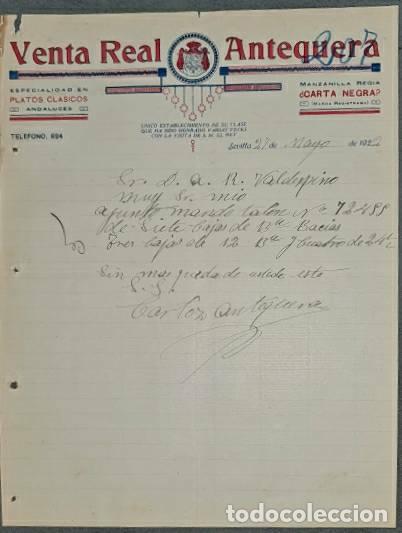 Venta Real Antequera
ESPECIALIDAD EN
PLATOS CLASICOS
ANDALUCES
TELEFONO, 694
UNICO ESTABLECIMIENTO DE SU CLASE
QUE HA SIDO HONRADO VARIAS VECES
CON LA VISITA DE S. M. EL REY
MANZANILLA REGIA
¿CARTA NEGRA?
(MARCA REGISTRADA)
Sevilla 27 de Mayo de
Sr. D. A. R. Valdespino
muy Sr. mio
adjunto mando talon Nº 72499
de Siete Cajas de Bª Bacias
tres cajas de 12 Bª y cuatro de 24
Sin mas queda de usted su
S. S.
Carlos Antequera
todocoleccion.net